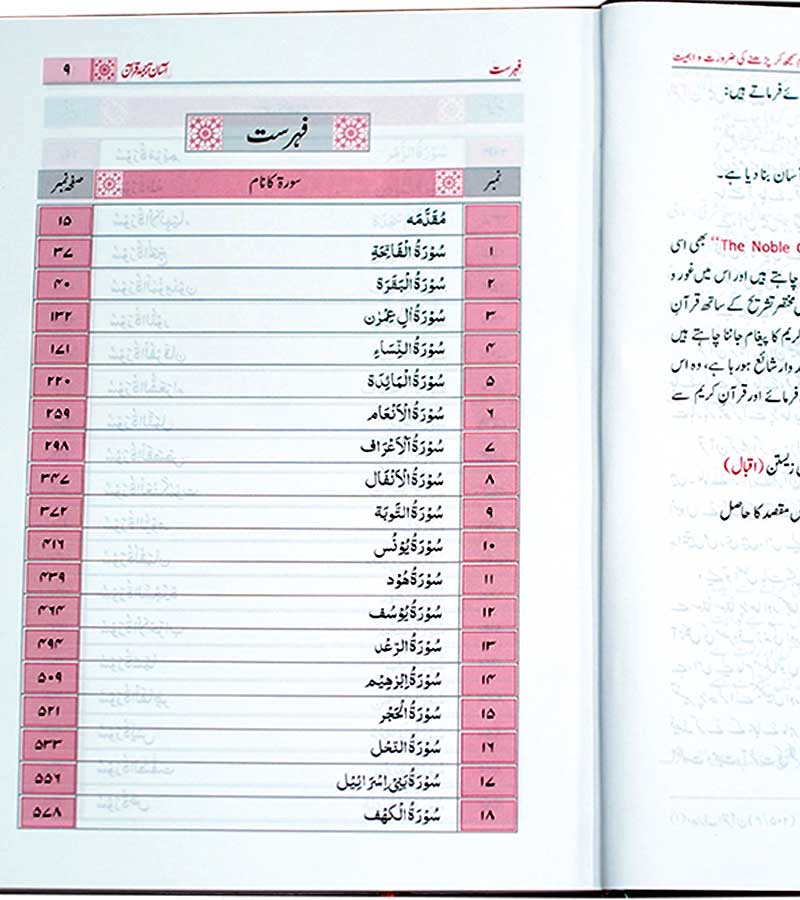 م سمجھ کر پڑھنے کی ضرورت و اہمیت
ئے فرماتے ہیں:
آسان بنا دیا ہے۔
The Noble“ بھی اسی
چاہتے ہیں اور اس میں غور و
مختصر تشریح کے ساتھ قرآنِ
کریم کا پیغام جاننا چاہتے ہیں
وار شائع ہو رہا ہے، وہ اس
فرمائے اور قرآنِ کریم سے
زیستن (اقبال)
مقصد کا حاصل
فہرست آسان ترجمۂ قرآن ۹
فہرست
نمبر سورۃ کا نام صفحہ نمبر
مُقَدَّمَه ۱۵
۱ سُوْرَةُ الْفَاتِحَةِ ۳۷
۲ سُوْرَةُ الْبَقَرَة ۴۰
۳ سُوْرَةُ اٰلِ عِمْرٰن ۱۳۲
۴ سُوْرَةُ النِّسَاءِ ۱۷۱
۵ سُوْرَةُ الْمَائِدَة ۲۲۰
۶ سُوْرَةُ الْاَنْعَام ۲۵۹
۷ سُوْرَةُ الْاَعْرَاف ۲۹۸
۸ سُوْرَةُ الْاَنْفَال ۳۴۷
۹ سُوْرَةُ التَّوبَة ۳۷۲
۱۰ سُوْرَةُ يُوْنُس ۴۱۶
۱۱ سُوْرَةُ هُوْد ۴۳۹
۱۲ سُوْرَةُ يُوْسُف ۴۶۴
۱۳ سُوْرَةُ الرَّعْد ۴۹۴
۱۴ سُوْرَةُ اِبْرٰهِيْم ۵۰۹
۱۵ سُوْرَةُ الْحَجْر ۵۲۱
۱۶ سُوْرَةُ النَّحْل ۵۳۳
۱۷ سُوْرَةُ بَنِيْ اِسْرَائِيْل ۵۵۶
۱۸ سُوْرَةُ الْكَهْف ۵۷۸